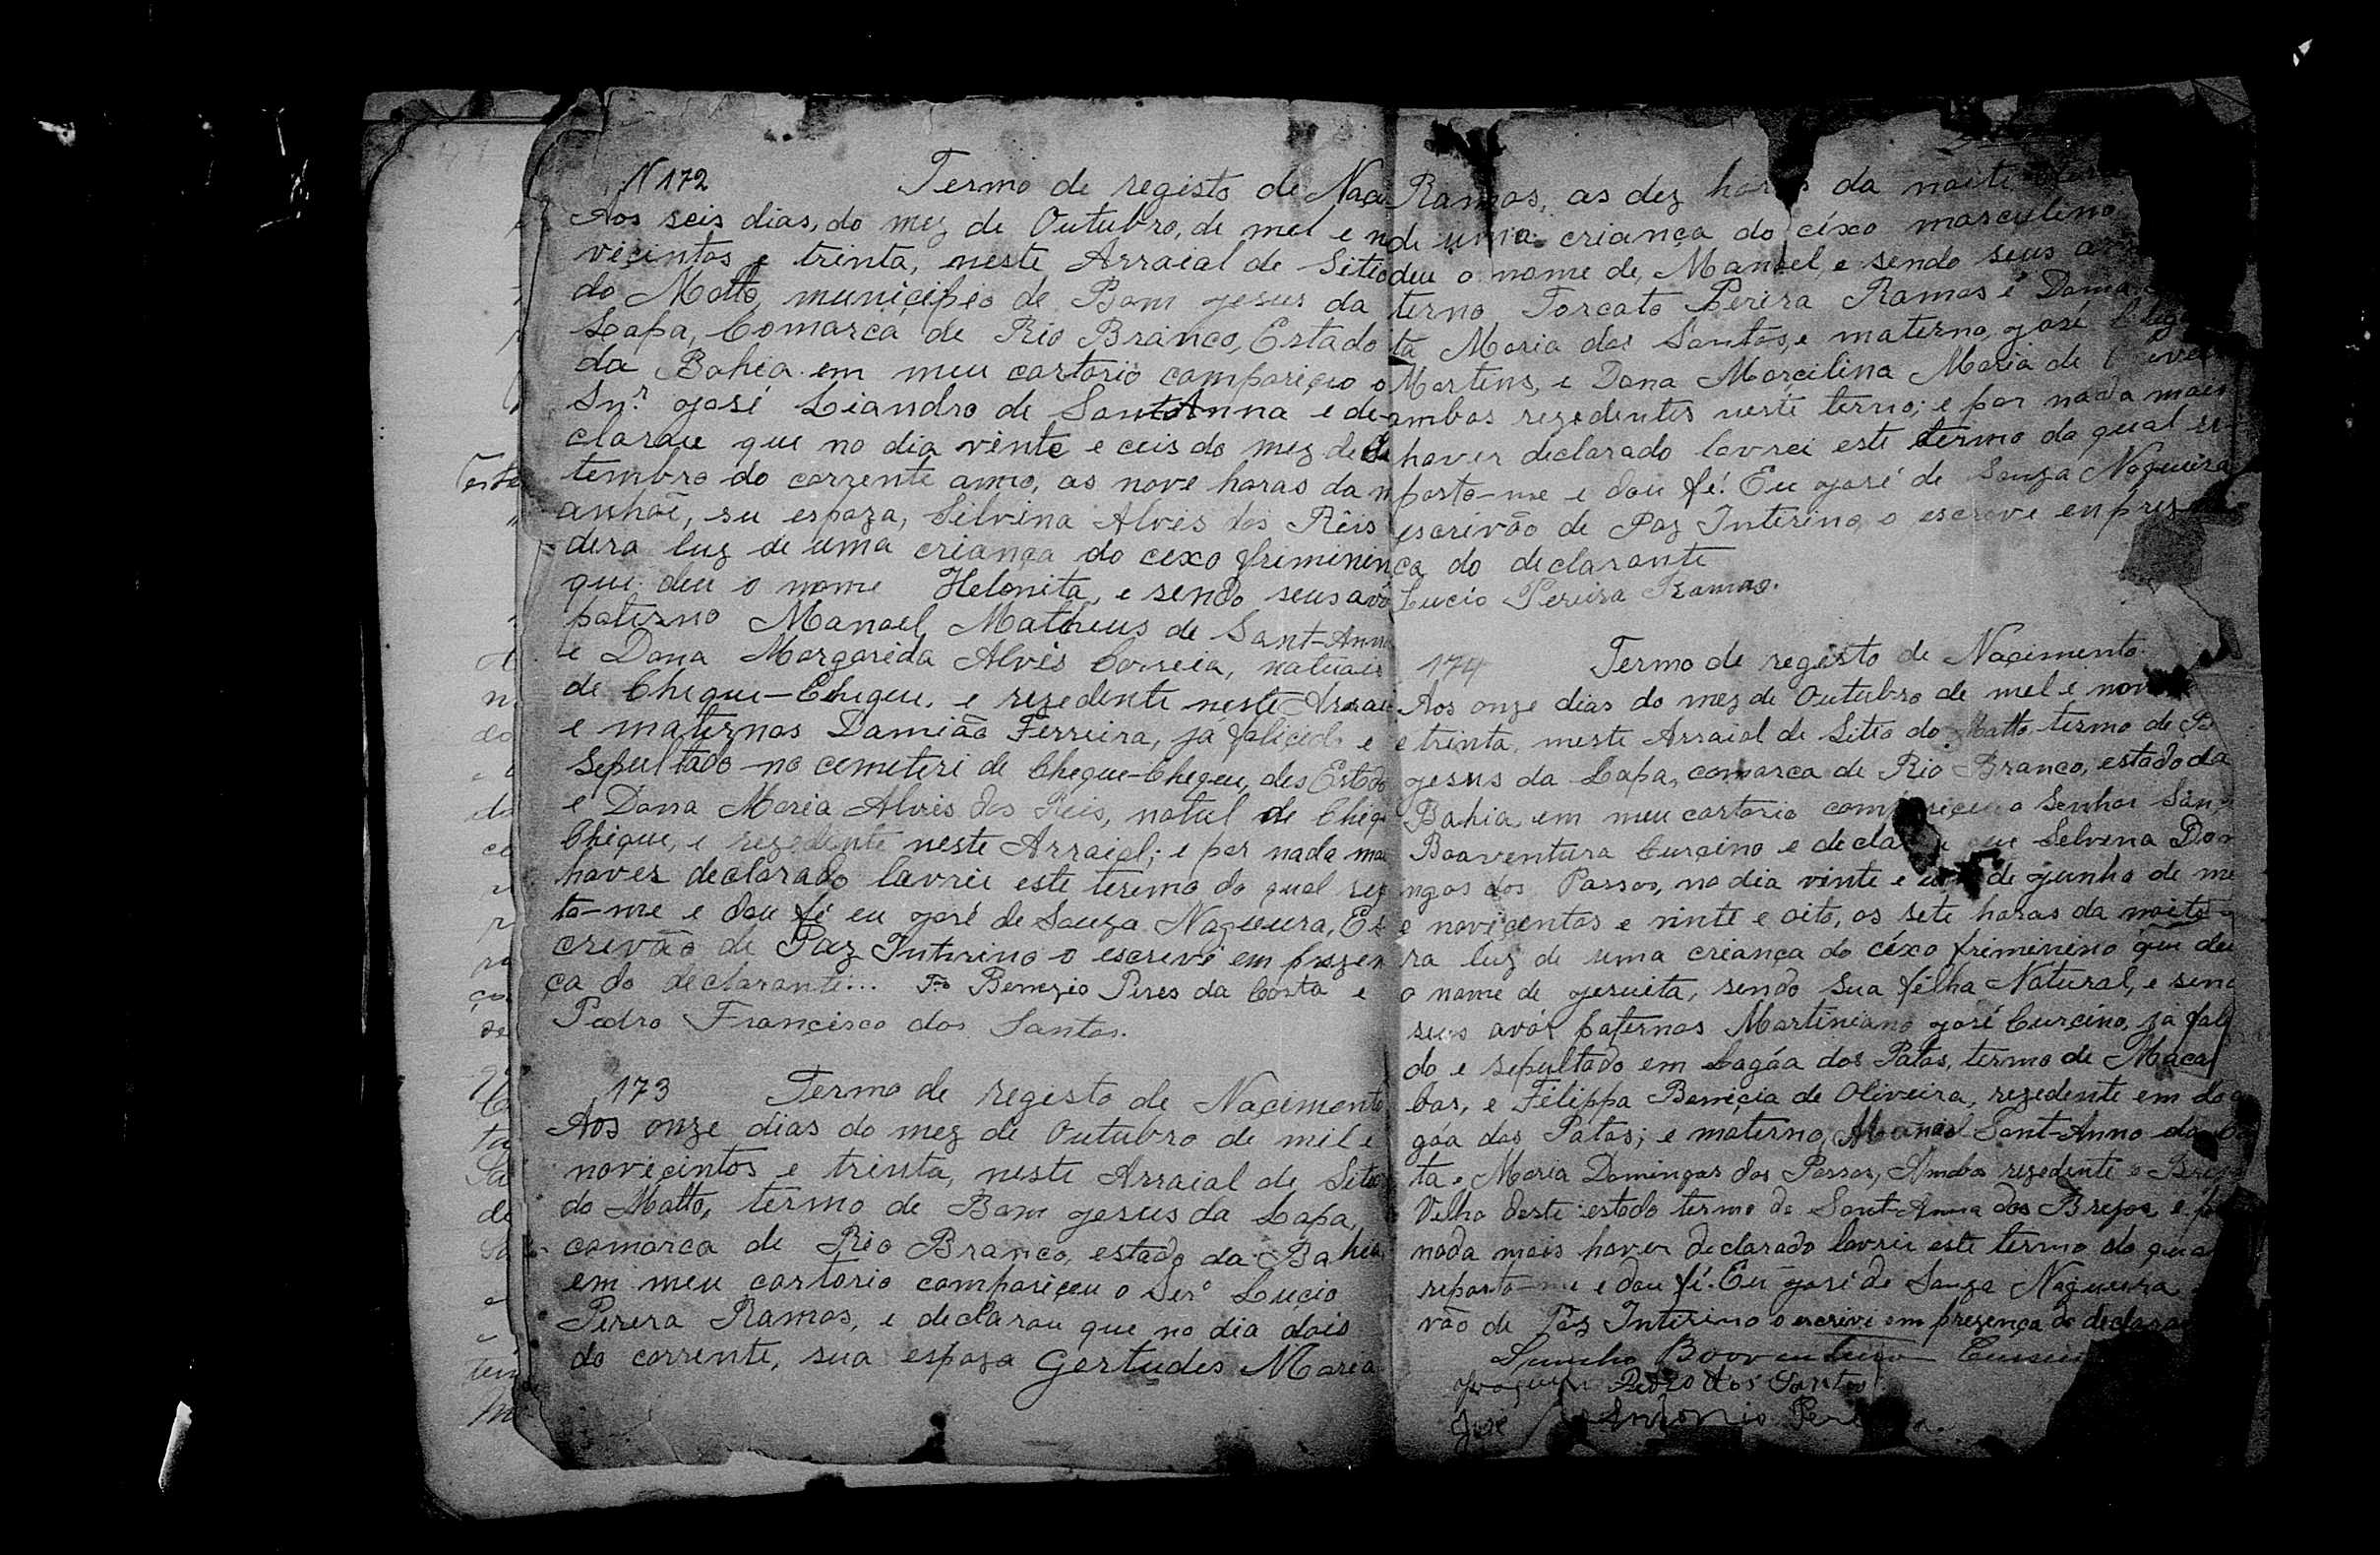 N 172 Termo de registo de Naci
Aos seis dias, do mez de Outubro, de mel e no
vicintos e trinta, neste Arraial de Sitio
do Matto, municipio de Bom Jesus da
Lapa, Comarca de Rio Branco, Estado
da Bahia em meu cartorio compariceo o
Snr. José Liandro de SantAnna e de-
clarou que no dia vinte e ceis do mez de Se
tembro do corrente anno, as nove horas da m
anhãe, su espoza, Silvina Alvis dos Reis
dera luz de uma criança do cexo friminin
que deu o nome Helenita, e sendo seus avó
paterno Manoel Matheus de Sant-Anna
e Dona Margarida Alvis Correia, natuais
de Chique-Chique, e rezedente neste Arraia
e maternos Damião Ferreira, já falicido e
sepultado no cemeteri de Chique-Chiqeu, des Estado
e Dona Maria Alvis dos Reis, natul de Chiq
Chique, e rezedente neste Arraial; e por nada mai
haver declarado lavrie este teremo do qual rep
to-me e dou fé eu José de Souza Nogueira, Es
crevão de Paz Interino o escrevi em prezen
ça do declarante... Benezio Pires da Costa e
Pedro Francisco dos Santos.
173 Termo de registo de Nacimento
Aos onze dias do mez de Outubro de mil e
novicintos e trinta, neste Arraial de Sitio
do Matto, termo de Bom Jesus da Lapa,
comarca de Rio Branco, estado da Bahia,
em meu cartorio compariçeu o Senr Lucio
Perera Ramos, e declarou que no dia dois
do corrente, sua espoza Gertudes Maria
Ramos, as dez horas da noite
de uma criança do céxo masculino
deu o nome de, Manoel, e sendo seus
terno Torcato Perera Ramos e Dona
ta Maria dos Santos, e materno, José
Martins, e Dona Marcilina Maria de
ambos rezedentes neste termo; e por nada mais
haver declarado lavrei este termo do qual re
porto-me e dou fé. Eu José de Souza Nogueira
escrivão de Paz Interino, o escrevi em prezen
ça do declarante
Lucio Pereira Ramos.
174 Termo de registo de Nacimento
Aos onze dias do mez de Outubro de mel e nov
e trinta, neste Arraial de Sitio do Matto, termo de B
Jesus da Lapa, comarca de Rio Branco, estado da
Bahia em meu cartorio compariçeu o Senhor
Boaventura Curcino e declarou que Selvina Dom
ingos dos Passos, no dia vinte e de Junho de me
e novicentos e vinte e oito, as sete horas da noite
ra luz de uma criança do céxo friminino que deu
o nome de Jesuita, sendo sua felha Natural, e send
seus avós paternos Martiniano José Curcino, já fali
do e sepultado em Lagôa dos Patos, termo de Macau
bas, e Filippa Beniçia de Oliveira, rezedente em
gôa dos Patos; e materno, Manoel Sant-Anno da
ta e Maria Domingas dos Passos, Ambos rezedente o Brejo
Velho deste estado termo de Sant-Anna dos Brejos, e po
nada mais haver declarado lavrie este termo do qual
reporto-me e dou fé. Eu José de Souza Nogueira
vão de Paz Interino o escrevi em prezença do declara
Boaventura
Joaquim Pedro dos Santos
José Antonio